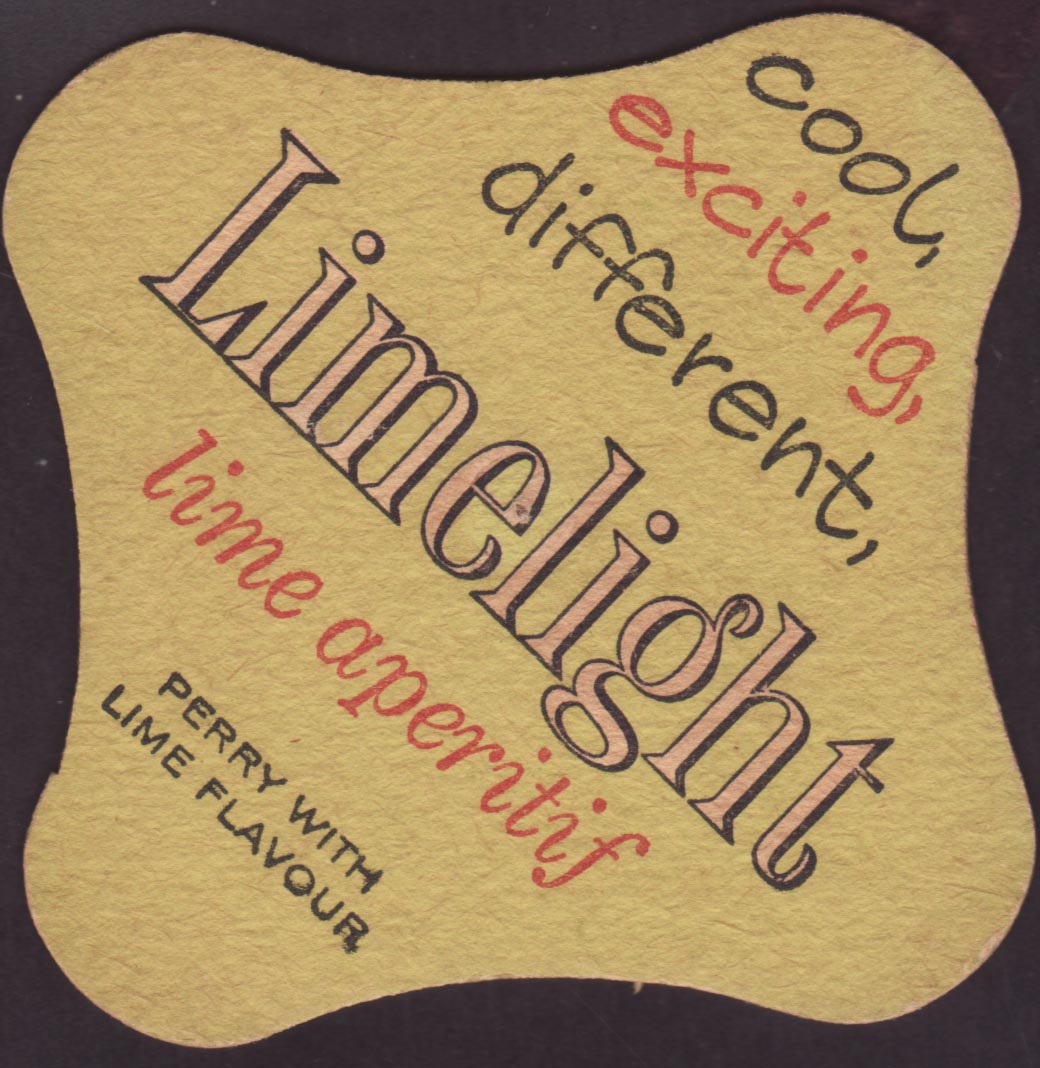 cool,
exciting,
different,
Limelight
lime aperitif
PERRY WITH
LIME FLAVOUR